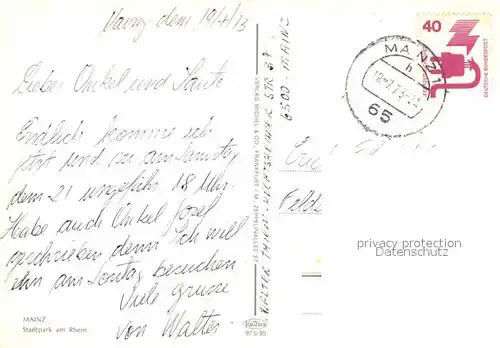 Mainz dem 19/7/73
Lieber Onkel und Tante
Endlich komme ich
jetzt und zu am Samstag
dem 21 ungefähr 18 Uhr.
Habe auch Onkel Josef
geschrieben denn Ich will
ihn am Sontag besuchen
Viele grusse
von Walter
MAINZ
Stadtpark am Rhein
97 5/30
VERLAG MICHEL & CO., FRANKFURT / M., ZEPPELINALLEE 27
WALTER
STR 37
6500 MAINZ
40
DEUTSCHE BUNDESPOST
MAINZ 1
h
65
Feld
privacy protection
Datenschutz